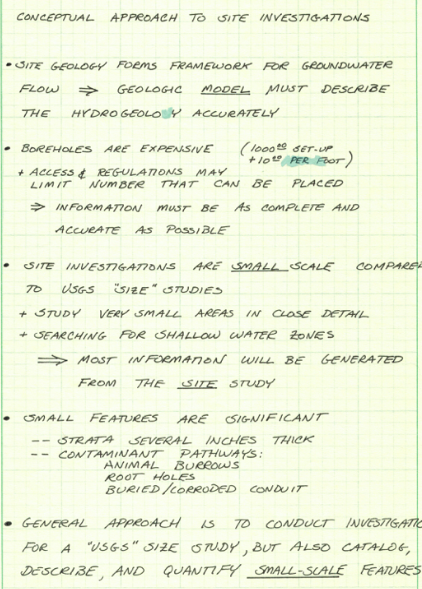 CONCEPTUAL APPROACH TO SITE INVESTIGATIONS
• SITE GEOLOGY FORMS FRAMEWORK FOR GROUNDWATER
FLOW ⇒ GEOLOGIC MODEL MUST DESCRIBE
THE HYDROGEOLOGY ACCURATELY
• BOREHOLES ARE EXPENSIVE (1000⁰⁰ SET-UP
+10⁰⁰ PER FOOT)
+ ACCESS & REGULATIONS MAY
LIMIT NUMBER THAT CAN BE PLACED
⇒ INFORMATION MUST BE AS COMPLETE AND
ACCURATE AS POSSIBLE
• SITE INVESTIGATIONS ARE SMALL SCALE COMPARED
TO USGS "SIZE" STUDIES
+ STUDY VERY SMALL AREAS IN CLOSE DETAIL
+ SEARCHING FOR SHALLOW WATER ZONES
⇒ MOST INFORMATION WILL BE GENERATED
FROM THE SITE STUDY
• SMALL FEATURES ARE SIGNIFICANT
-- STRATA SEVERAL INCHES THICK
-- CONTAMINANT PATHWAYS:
ANIMAL BURROWS
ROOT HOLES
BURIED/CORRODED CONDUIT
• GENERAL APPROACH IS TO CONDUCT INVESTIGATIO
FOR A "USGS" SIZE STUDY, BUT ALSO CATALOG,
DESCRIBE, AND QUANTIFY SMALL-SCALE FEATURES